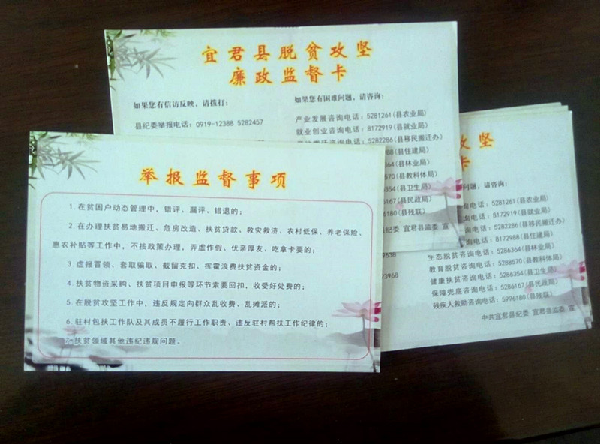 宜君县脱贫攻坚
廉政监督卡
如果您有信访反映，请拨打：
县纪委举报电话：0919-12388 5282457
如果您有困难问题，请咨询：
产业发展咨询电话：5281261(县农业局)
就业创业咨询电话：8172919(县就业局)
5282286(县移民搬迁办)
(县住建局)
(县林业局)
(县教科体局)
(县卫生局)
(县民政局)
宜君县监委
举报监督事项
1. 在贫困户动态管理中，错评、漏评、错退的；
2. 在办理扶贫易地搬迁、危房改造、扶贫贷款、救灾救济、农村低保、养老保险、
惠农补贴等工作中，不按政策办理，弄虚作假，优亲厚友，吃拿卡要的；
3. 虚报冒领、套取骗取、截留克扣、挥霍浪费扶贫资金的；
4. 扶贫物资采购、扶贫项目申报等环节索要回扣、收受好处费的；
5. 在脱贫攻坚工作中，违反规定向群众乱收费、乱摊派的；
6. 驻村包扶工作队及其成员不履行工作职责，违反驻村帮扶工作纪律的；
7. 扶贫领域其他违纪违规问题。
攻坚
卡
问题，请咨询：
电话：5281261(县农业局)
电话：8172919(县就业局)
电话：5282286(县移民搬迁办)
电话：8172988(县住建局)
生态脱贫咨询电话：5286364(县林业局)
教育脱贫咨询电话：5288570(县教科体局)
健康扶贫咨询电话：5286354(县卫生局)
保障兜底咨询电话：5281564(县民政局)
残疾人救助咨询电话：5996180(县残联)
中共宜君县纪委 宜君县监委